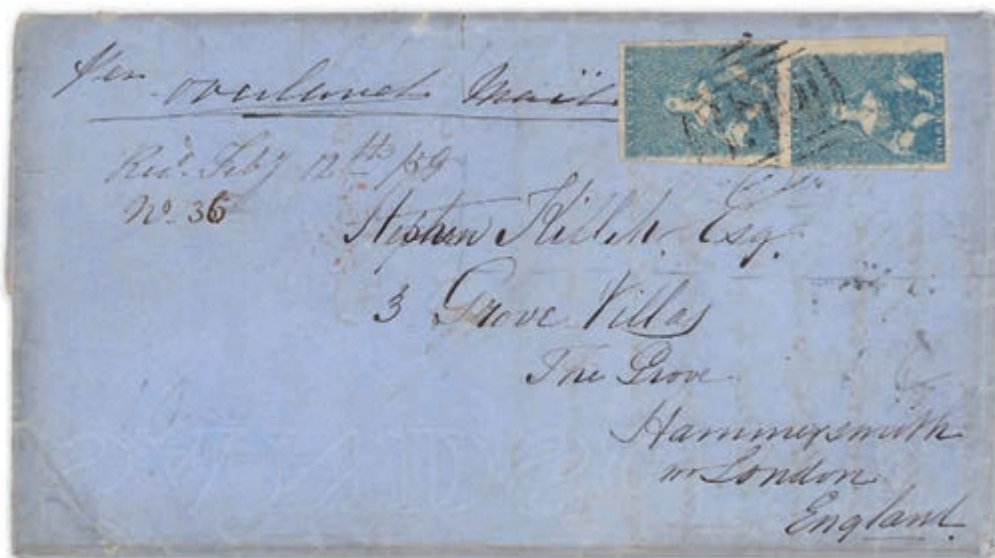 per overland Mail
Recd. Feby 12th /59
No. 36
Stephen Esq.
3 Grove Villas
The Grove
Hammersmith
nr London
England